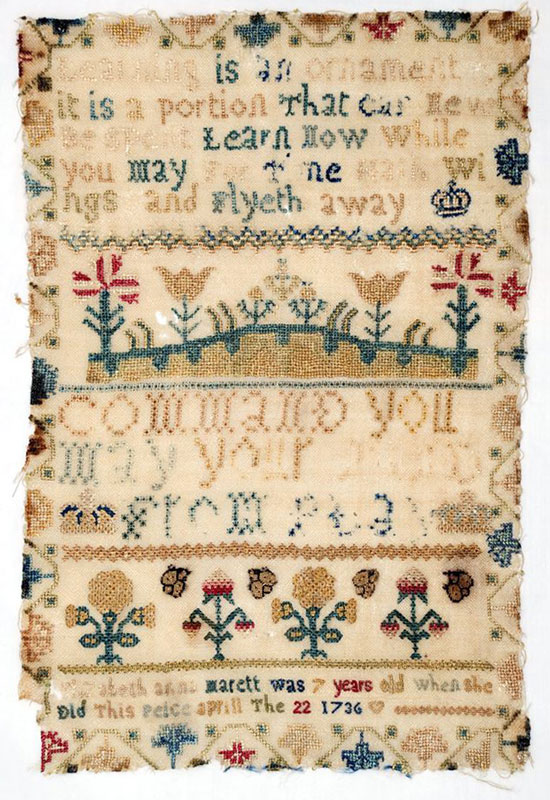 Learning is an ornament
it is a portion That can neve
be spent Learn Now while
you may for Time hath wi
ngs and Flyeth away
command you
may your
From Play
Elizabeth anna marett was 7 years old when she
Did This Peice aprill The 22 1736